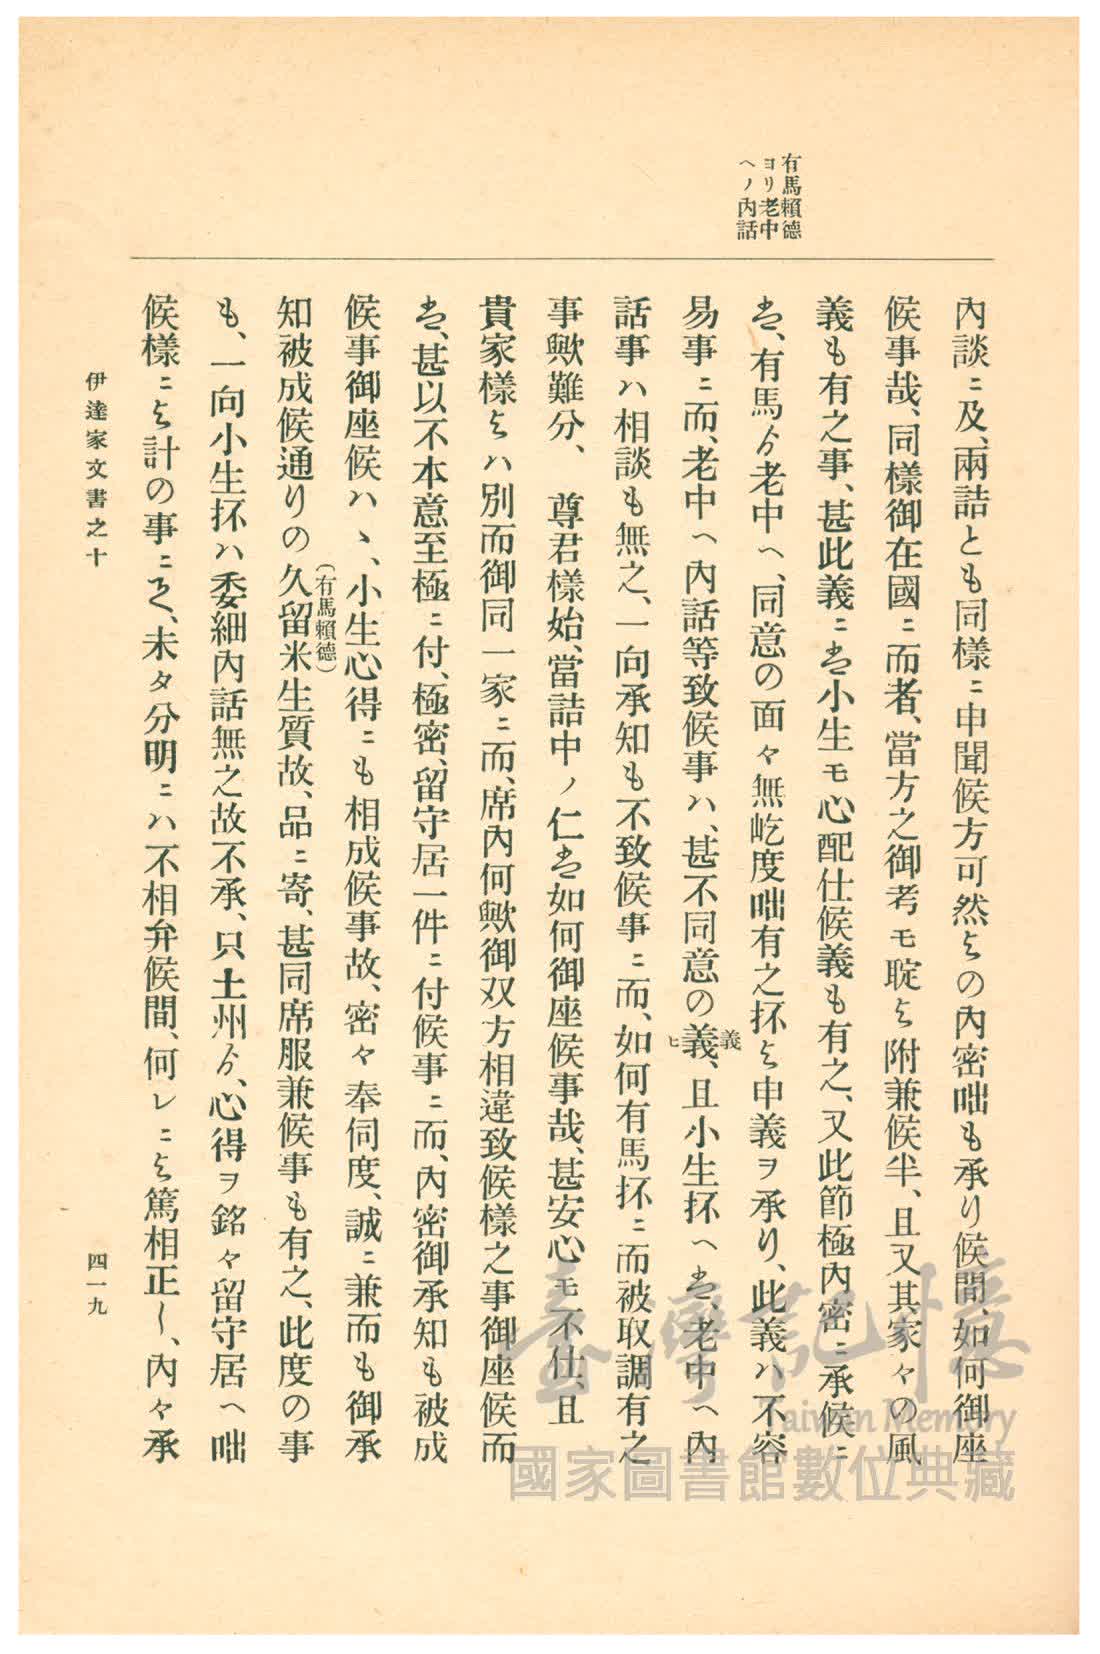 有馬賴德
ヨリ老中
ヘノ內話
內談ニ及、兩詰とも同樣ニ申聞候方可然との內密咄も承り候間、如何御座
候事哉、同樣御在國ニ而者、當方之御考モ聢と附兼候半、且又其家々の風
義も有之事、甚此義ニ者小生モ心配仕候義も有之、又此節極內密ニ承候ニ
者、有馬ゟ老中ヘ、同意の面々無屹度咄有之抔と申義ヲ承り、此義ハ不容
易事ニ而、老中ヘ內話等致候事ハ、甚不同意の義、且小生抔ヘ者、老中ヘ內
義
ヒ
話事ハ相談も無之、一向承知も不致候事ニ而、如何有馬抔ニ而被取調有之
事歟難分、　尊君樣始、當詰中ノ仁者如何御座候事哉、甚安心モ不仕、且
貴家樣とハ別而御同一家ニ而、席內何歟御双方相違致候樣之事御座候而
者、甚以不本意至極ニ付、極密、留守居一件ニ付候事ニ而、內密御承知も被成
候事御座候ハヽ、小生心得ニも相成候事故、密々奉伺度、誠ニ兼而も御承
知被成候通りの久留米生質故、品ニ寄、甚同席服兼候事も有之、此度の事
(有馬賴德)
も、一向小生抔ハ委細內話無之故不承、只土州ゟ、心得ヲ銘々留守居ヘ咄
候樣ニと計の事ニて、未タ分明ニハ不相弁候間、何レニと篤相正し、內々承
伊達家文書之十
四一九
臺灣記憶
Taiwan Memory
國家圖書館數位典藏